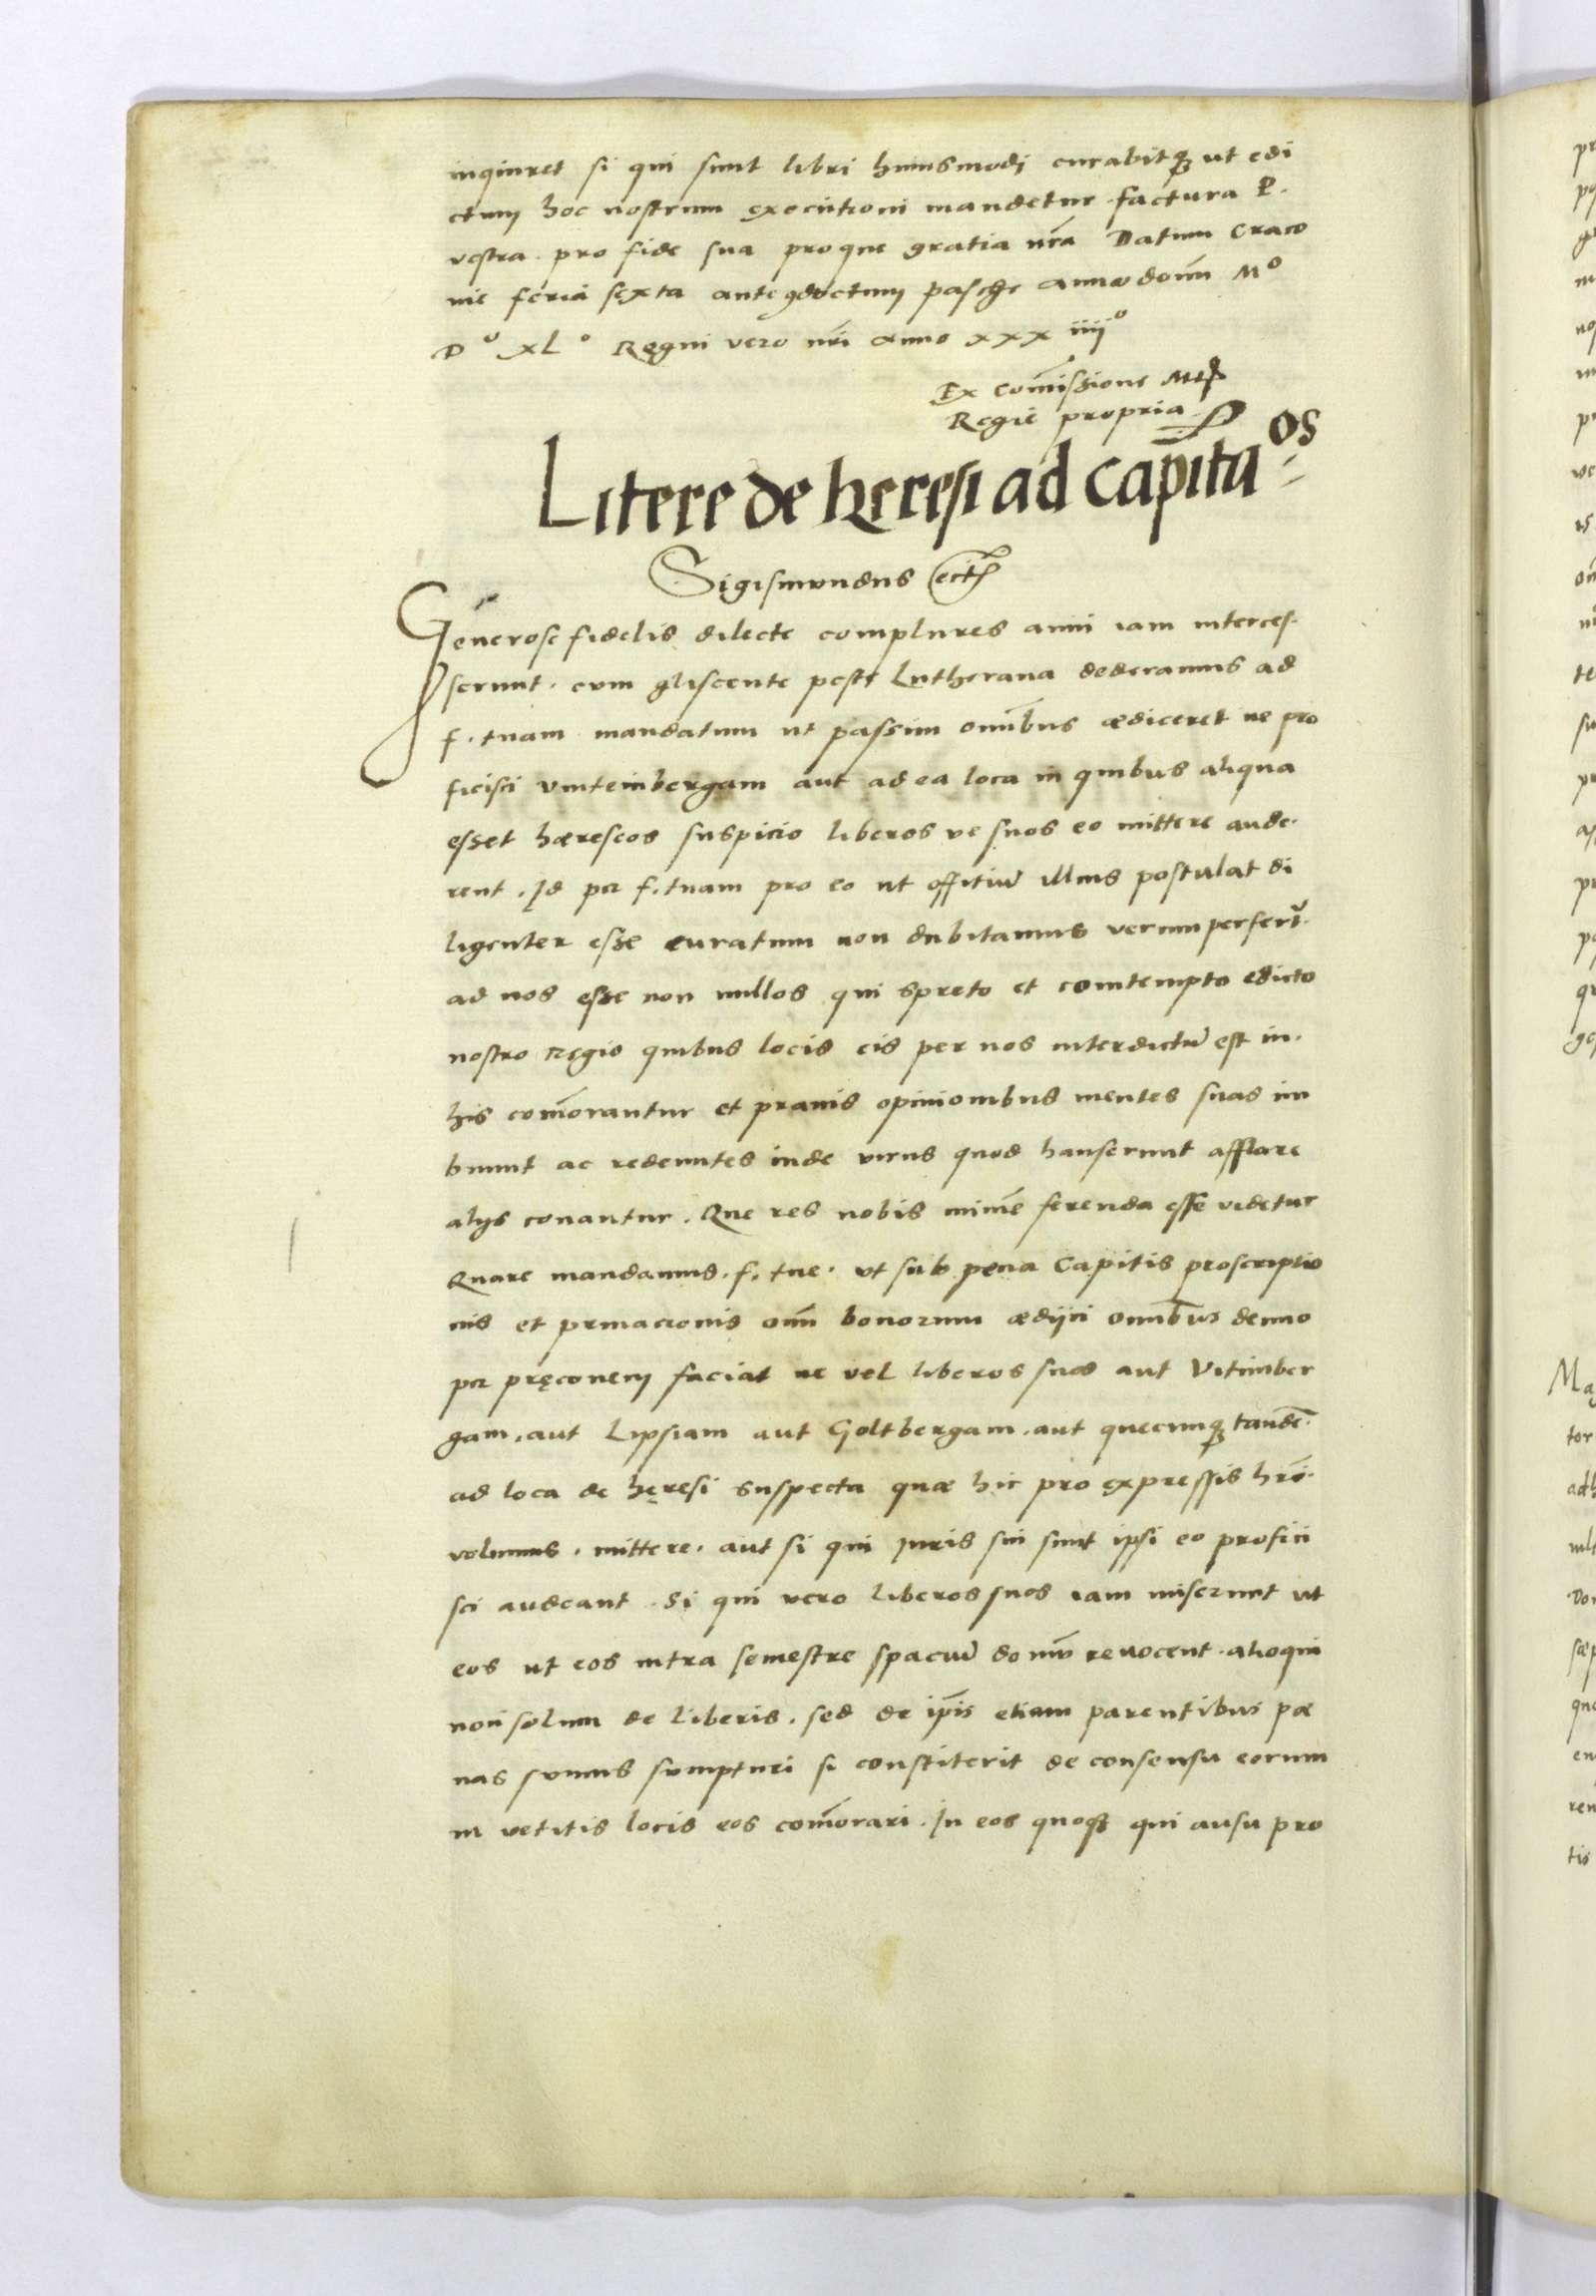 inquiret si qui sunt libri huiusmodi curabitqꝫ ut edi
ctum hoc nostrum executioni mandetur factura P.
vestra pro fide sua proque gratia nr̃a Datum Craco
nie feria sexta ante conductum pasche anno domini Mo
Do xLo Regni vero nr̃i anno xxx iiijo
Ex com̃issione Mtis
Regie propria
Litere de heresi ad capita os
Sigismundus ect
Generose fidelis dilecte complures anni iam interces
serunt. cum gliscente peste Lutherana dederamus ad
f. tuam mandatum ut passim omnibus ediceret ne pro
ficisci vuitembergam aut ad ea loca in quibus aliqua
esset hæreseos suspicio liberos ve suos eo mittere aude
rent. Id per f. tuam pro eo ut offitiũ illius postulat di
ligenter esse curatum non dubitamus verum perfertũ
ad nos esse non nullos qui spreto et comtempto edicto
nostro regio quibus locis eis per nos interdictũ est in
his com̃orantur et prauis opinionibus mentes suas im
buunt ac redeuntes inde virus quod hauserunt afflare
alijs conantur. Que res nobis minimẽ ferenda esse videtur
Quare mandamus. f. tue. vt sub pena Capitis proscriptio
nis et priuacionis om̃ bonorum ædijci omnibus denuo
per pręconem faciat ne vel liberos suos aut Vitimber
gam. aut Lipsiam aut Goltbergam. aut quecunqꝫ tandẽ
ad loca de hęresi suspecta quæ hic pro expressis hr̃i
volumus. mittere. aut si qui iuris sui sunt ipsi eo profici
sci audeant. Si qui vero liberos suos iam miserunt ut
eos ut eos intra semestre spaciũ domũ reuocent. alioqui
non solum de liberis. sed de ip̃is etiam parentibus pæ
nas sumus sumpturi si constiterit de consensu eorum
in vetitis locis eos com̃orari. In eos quoqꝫ qui ausu pro